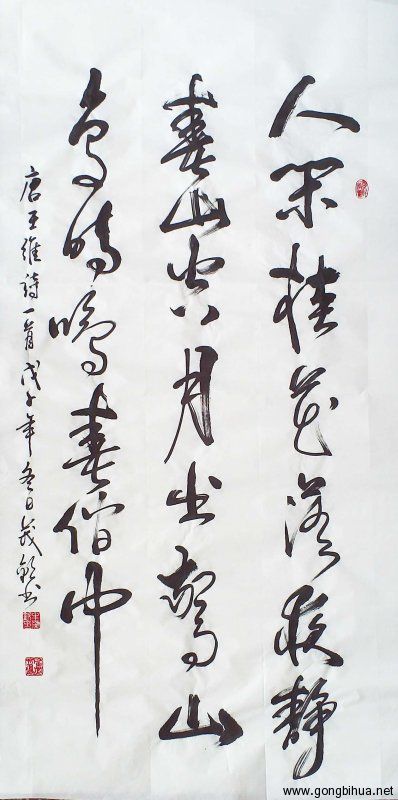 人閑桂花落夜静
春山空月出驚山
鳥時鳴春澗中
唐王維詩一首戊子年冬日書
www.gongbihua.net